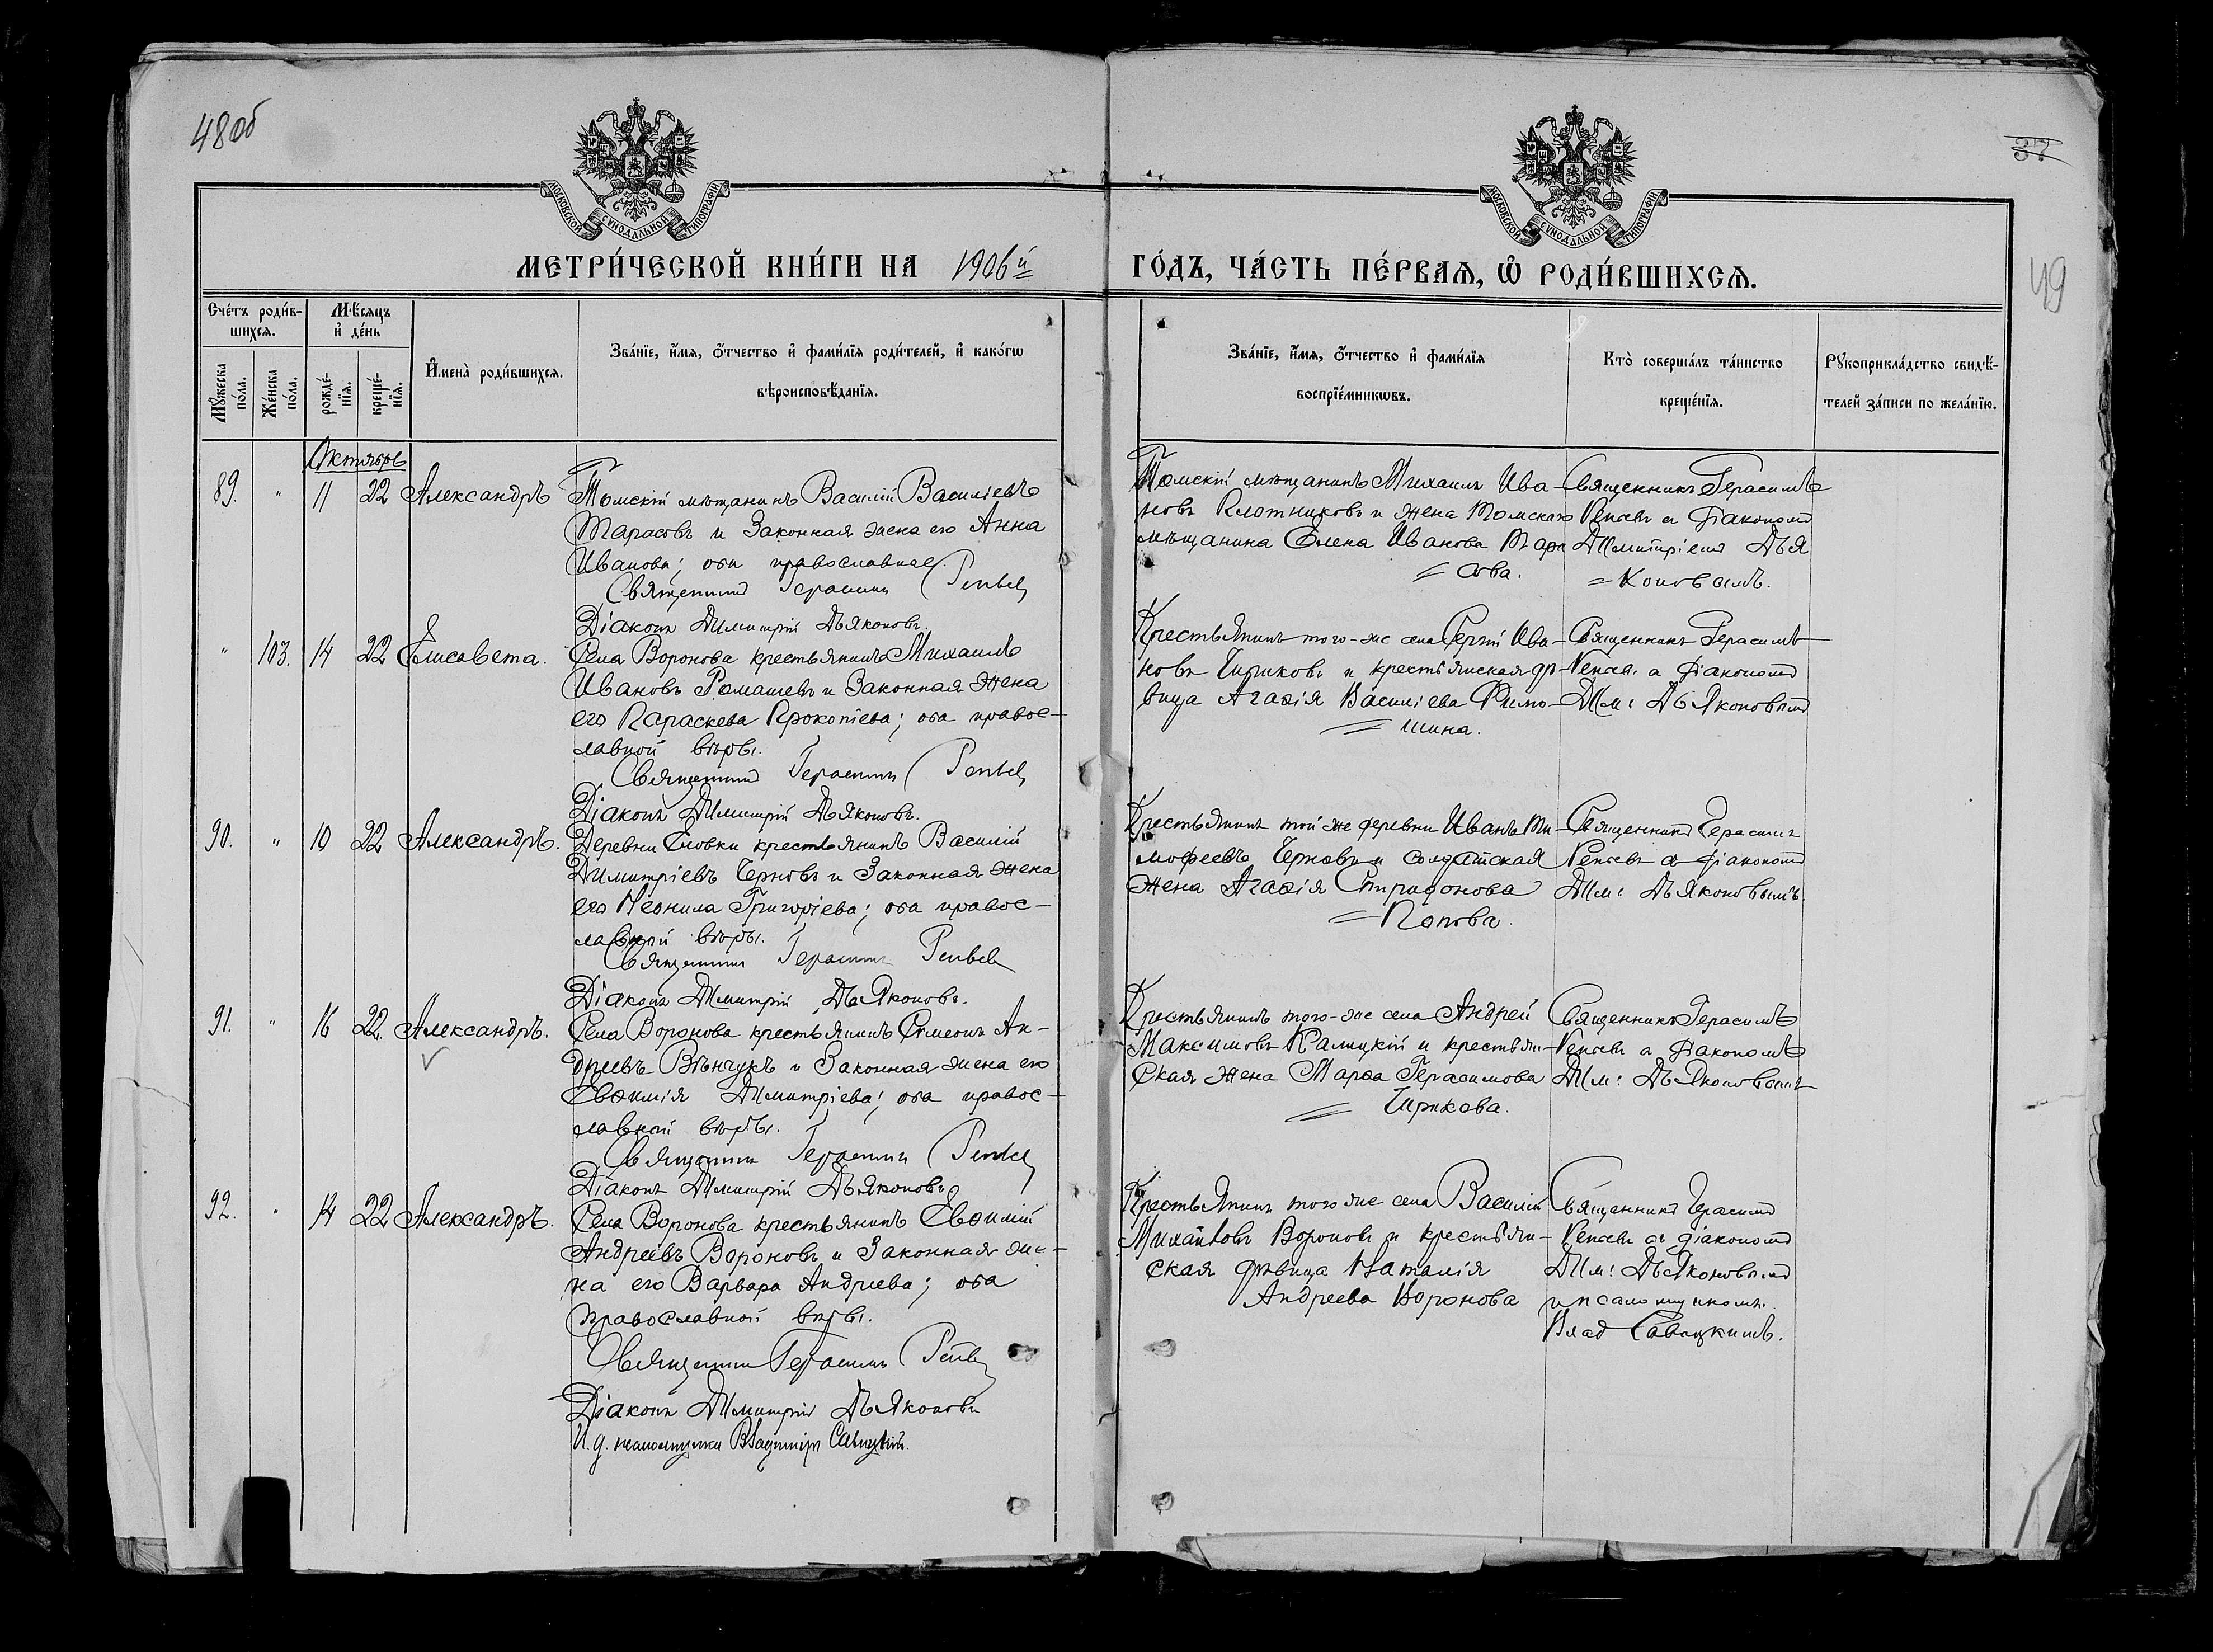 48об
37
49
МОСКОВСКОЙ СѴНОДАЛЬНОЙ ТИПОГРАФІИ
МОСКОВСКОЙ СѴНОДАЛЬНОЙ ТИПОГРАФІИ
МЕТРИ́ЧЕСКОЙ КНИ́ГИ НА 1906й
ГО́ДЪ, ЧА́СТЬ ПЕ́РВАѦ, Ѡ РОДИ́ВШИХСѦ.
Сче́тъ роди́в-
шихсѧ.
Мѣ́сѧцъ
и҆ де́нь
Мꙋ́жеска
по́ла.
Же́нска
по́ла.
рожде́-
нїѧ.
креще́-
нїѧ.
И҆мена̀ роди́вшихсѧ.
Зва́нїе, и҆́мѧ, ѻ҆́тчество и҆ фами́лїѧ роди́телей, и҆ како́гѡ
вѣроисповѣ́данїѧ.
Зва́нїе, и҆́мѧ, ѻ҆́тчество и҆ фами́лїѧ
воспрїе́мникѡвъ.
Кто̀ соверша́лъ та́инство
креще́нїѧ.
Рꙋкоприкла́дство свидѣ́-
телей за́писи по жела́нїю.
Октябрь
89. " 11 22 Александръ
Томскій мѣщанинъ Василій Василіевъ
Тарасовъ и законная жена его Анна
Иванова; оба православные.
Священникъ Герасимъ
Діаконъ Димитрій Дьяконовъ.
Томскій мѣщанинъ Михаилъ Ива-
новъ Плотниковъ и жена Томскаго
мѣщанина Елена Иванова Тара
= сова.
Священникъ Герасимъ
съ діакономъ
Димитріемъ Дья
= коновымъ.
" 103. 14 22 Елисавета.
Села Воронова крестьянинъ Михаилъ
Ивановъ Ромашевъ и законная жена
его Параскева Прокопіева; оба правос-
лавной вѣры.
Священникъ Герасимъ
Діаконъ Димитрій Дьяконовъ.
Крестьянинъ того-же села Сергій Ива-
новъ Чириковъ и крестьянская дѣ-
вица Агафія Василіева
= шина.
Священникъ Герасимъ
съ діакономъ
Дим: Дьяконовымъ
90. " 10 22 Александръ.
Деревни Еловки крестьянинъ Василій
Димитріевъ Черновъ и законная жена
его Неонила Григоріева; оба правос-
лавной вѣры.
Священникъ Герасимъ
Діаконъ Димитрій Дьяконовъ.
Крестьянинъ той же деревни Иванъ Ти-
мофеевъ Черновъ и солдатская
жена Агафія Спиридонова
= Попова.
Священникъ Герасимъ
съ діакономъ
Дим: Дьяконовымъ.
91. " 16 22. Александръ.
Села Воронова крестьянинъ Симеонъ Ан-
дреевъ Вѣнчукъ и законная жена его
Евѳимія Димитріева; оба правос-
лавной вѣры.
Священникъ Герасимъ
Діаконъ Димитрій Дьяконовъ
Крестьянинъ того-же села Андрей
Максимовъ Калицкій и крестьян-
ская жена Марѳа Герасимова
= Чирикова.
Священникъ Герасимъ
съ діакономъ
Дим: Дьяконовымъ
92. " 14 22 Александръ.
Села Воронова крестьянинъ Евѳимій
Андреевъ Вороновъ и законная же-
на его Варвара Андреева; оба
православной вѣры.
Священникъ Герасимъ
Діаконъ Димитрій Дьяконовъ
И. д. псаломщика Владиміръ Савицкій.
Крестьянинъ того же села Василій
Михайловъ Вороновъ и крестьян-
ская дѣвица Наталія
Андреева Воронова
Священникъ Герасимъ
съ діакономъ
Дим: Дьяконовымъ
и псаломщикомъ
Влад Савицкимъ.